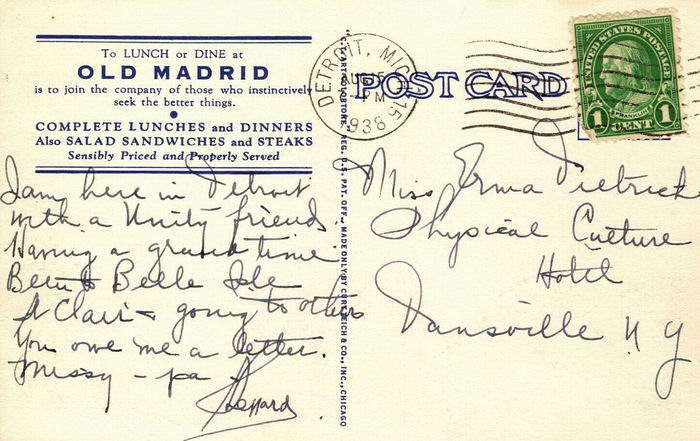 To LUNCH or DINE at
OLD MADRID
is to join the company of those who instinctively
seek the better things.
COMPLETE LUNCHES and DINNERS
Also SALAD SANDWICHES and STEAKS
Sensibly Priced and Properly Served
I am here in Detroit
with a Unity friend.
Having a grand time.
Been to Belle Isle
St Clair & going to others
You owe me a letter.
Missy - pa
"C.T. ART-COLORTONE" REG. U.S. PAT. OFF. MADE ONLY BY CURT TEICH & CO., INC., CHICAGO
DETROIT, MICH.
AUG 15
PM
1938
POST CARD
UNITED STATES POSTAGE
FRANKLIN
1 CENT 1
Miss Erma Dietrich
Physical Culture
Hotel
Dansville N Y